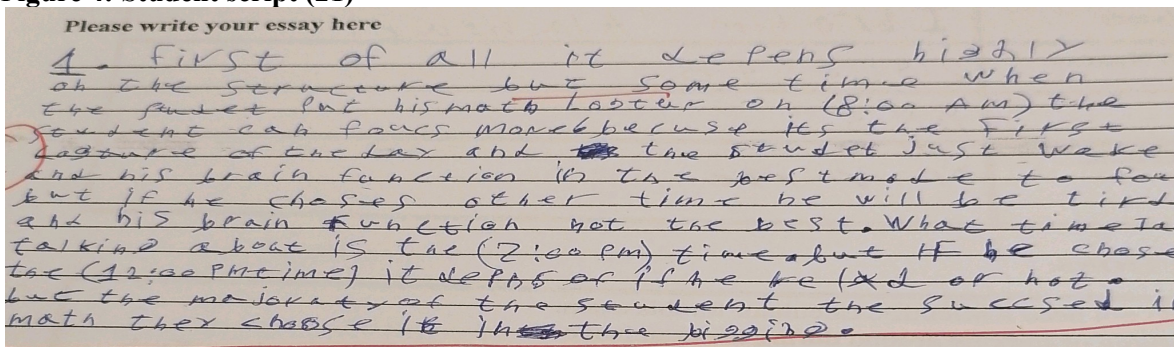 Please write your essay here
1. first of all it depens highly
on the structure but some time when
the studet put his math lactur on (8:00 AM) the
student can foucs more becuse its the first
of the day and the studet just wake
and his brain function in the best mode to fou
but if he choses other time he will be tird
and his brain function not the best. What time Ia
talking about is the (2:00 pm) time. but If he chose
the (12:00 pm time) it depns of if he re lxd or not.
but the majoraty of the student the succsed i
math they choose it in the biggino.